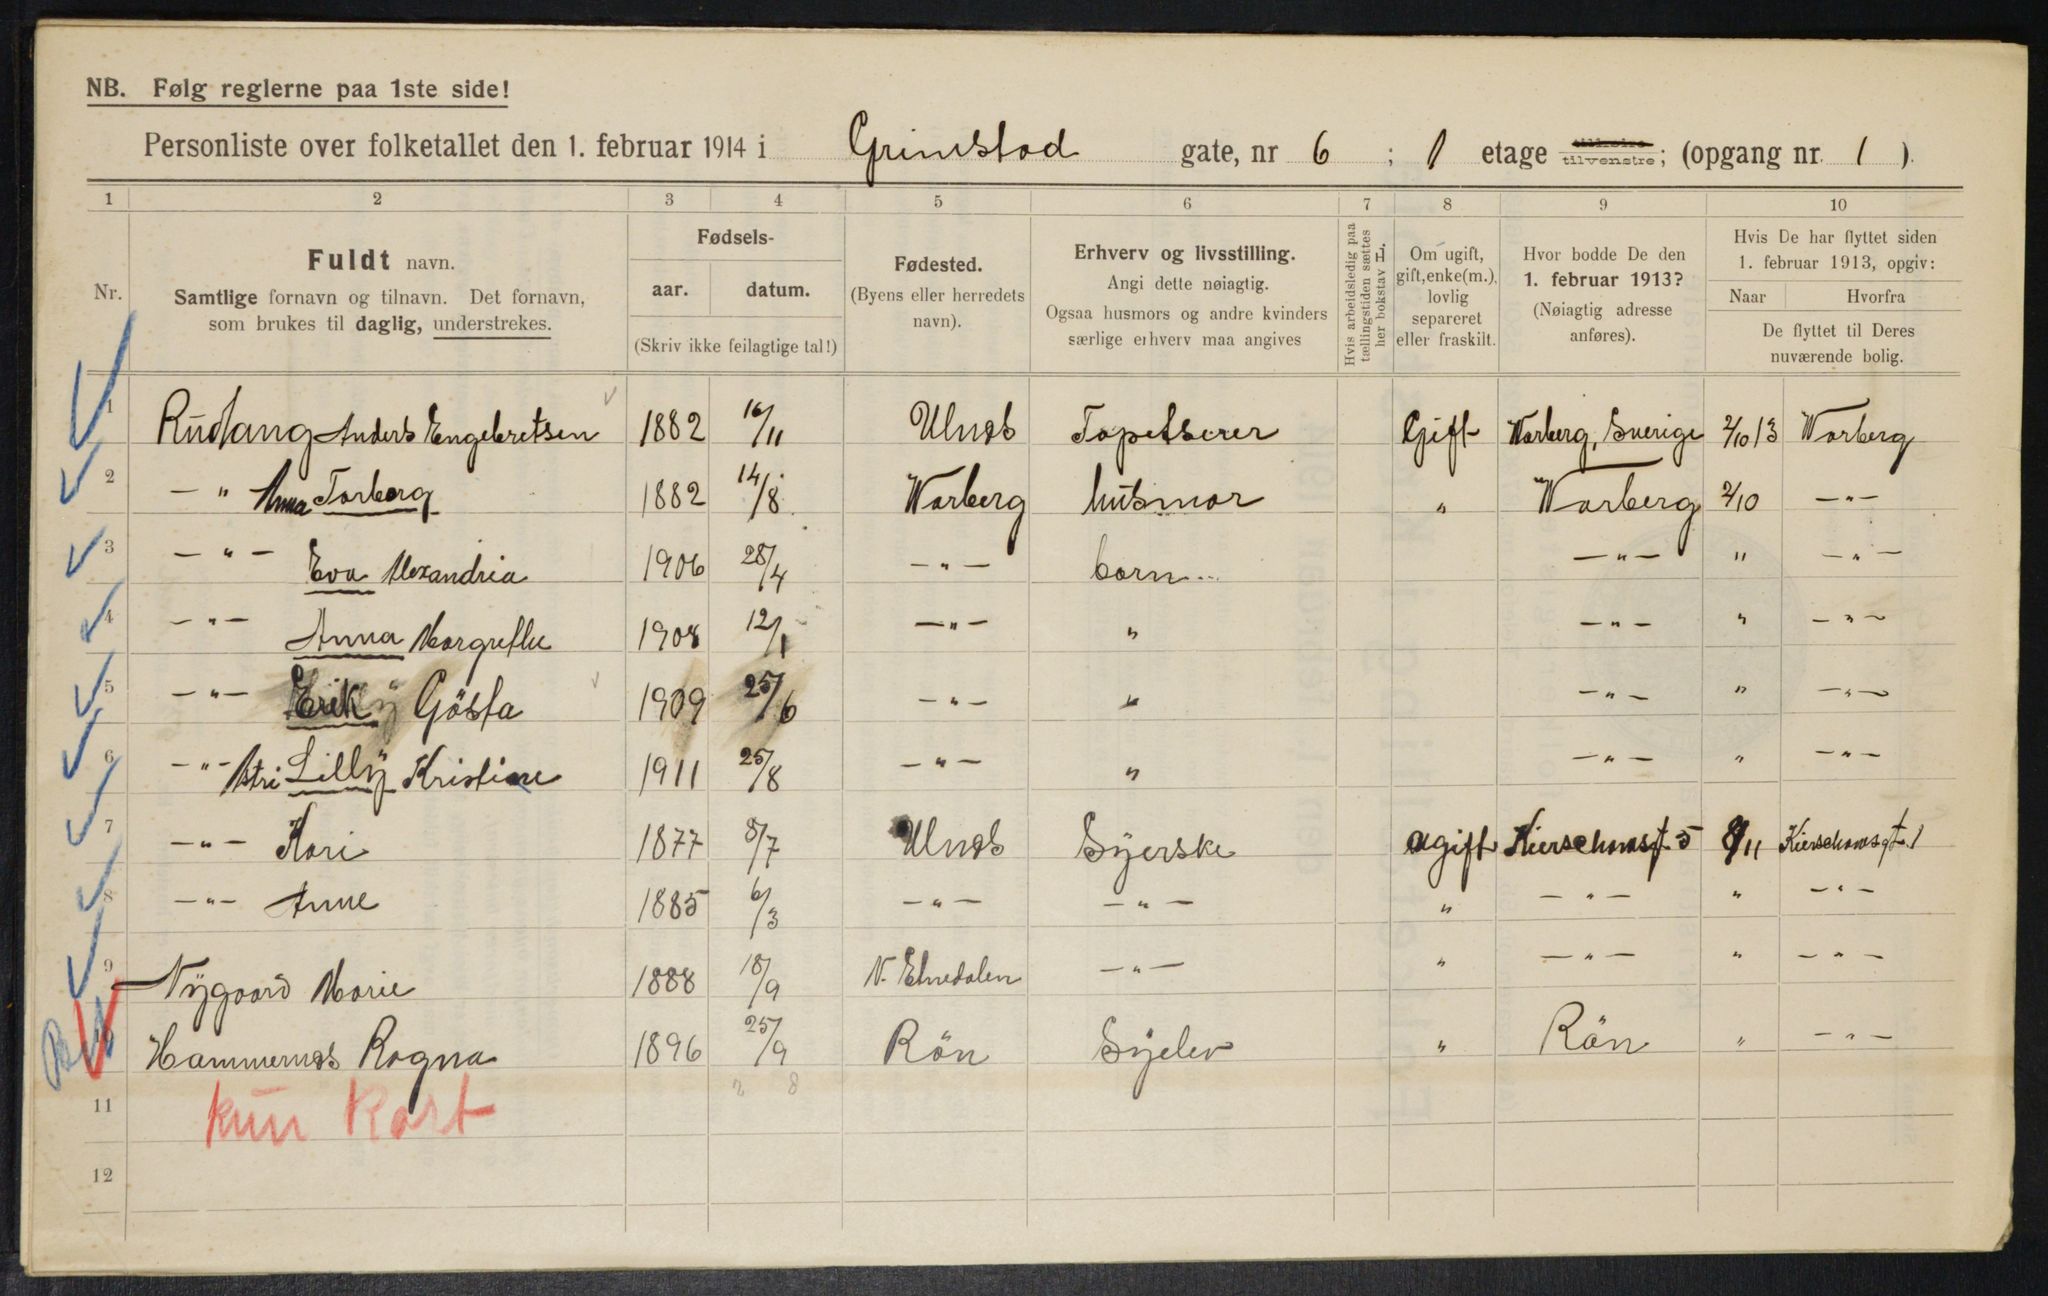 NB. Følg reglerne paa 1ste side!
Personliste over folketallet den 1. februar 1914 i Grimstad gate, nr 6 ; 1 etage tilhøire tilvenstre; (opgang nr. 1 ).
1 2 3 4 5 6 7 8 9 10
Nr.
Fuldt navn.
Samtlige fornavn og tilnavn. Det fornavn,
som brukes til daglig, understrekes.
Fødsels-
aar. datum.
(Skriv ikke feilagtige tal!)
Fødested.
(Byens eller herredets
navn).
Erhverv og livsstilling.
Angi dette nøiagtig.
Ogsaa husmors og andre kvinders
særlige erhverv maa angives
Hvis arbeidsledig paa
tællingstiden sættes
her bokstav L.
Om ugift,
gift, enke(m.),
lovlig
separeret
eller fraskilt.
Hvor bodde De den
1. februar 1913?
(Nøiagtig adresse
anføres).
Hvis De har flyttet siden
1. februar 1913, opgiv:
Naar Hvorfra
De flyttet til Deres
nuværende bolig.
1 Rudlang Anders Engebretsen 1882 16/11 Ulnæs Tapetserer Gift Warberg, Sverige 2/10 13 Warberg
2 — " Anna Torborg 1882 14/8 Warberg husmor " Warberg 2/10 — " —
3 — " — Eva Alexandria 1906 28/4 — " — barn — " — " — " —
4 — " — Anna Margrethe 1908 12/1 — " — " — " — " — " —
5 — " — Erik Gösta 1909 25/6 — " — " — " — " — " —
6 — " — Astri Lilly Kristine 1911 25/8 — " — " — " — " — " —
7 — " — Kari 1877 8/7 Ulnæs Syerske ugift Kierschowsgt 5 8/11 Kierschowsgt. 1
8 — " — Anne 1885 6/3 — " — — " — " — " — " — " —
9 Nygaard Marie 1888 18/9 N. Etnedalen — " — " — " — " — " —
10 Hammernæs Ragna 1896 25/9 Rön Syelev " Rön " — " —
11 kun Kort
12